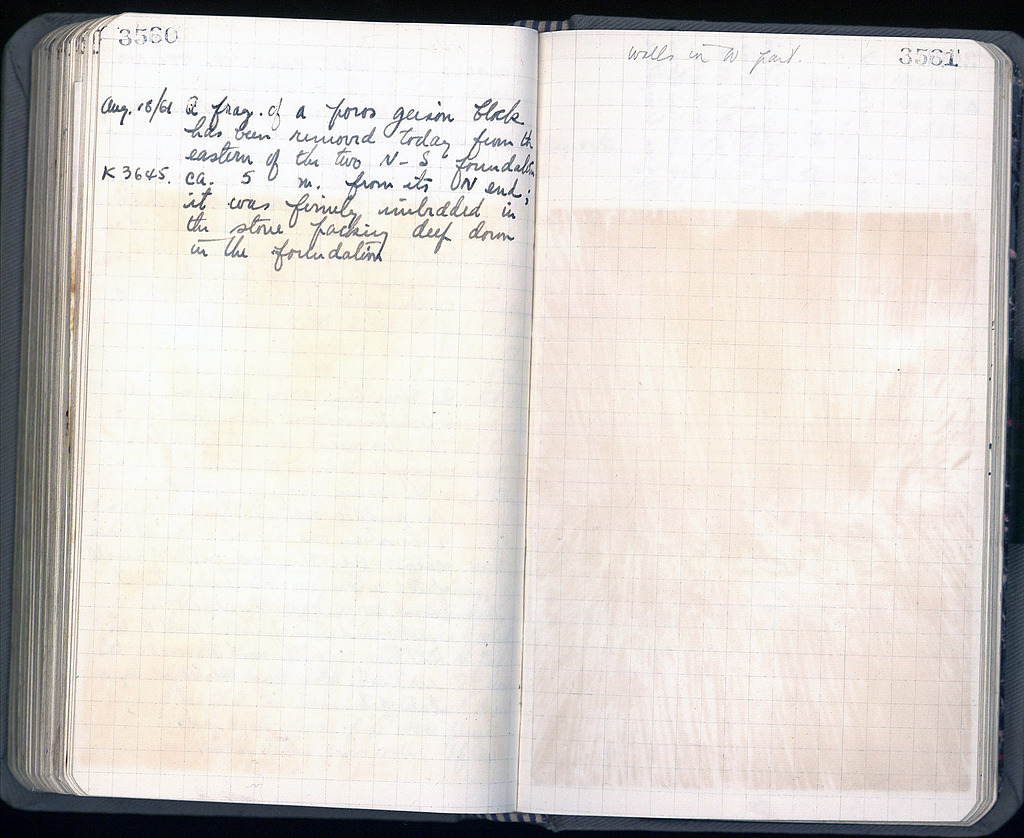 3560
Aug. 18/61 A frag. of a poros geison block
has been removed today from th
eastern of the two N-S foundation
K 3645. ca. 5 m. from its N end;
it was firmly imbedded in
the stone packing deep down
in the foundation
3561
walls in W part.